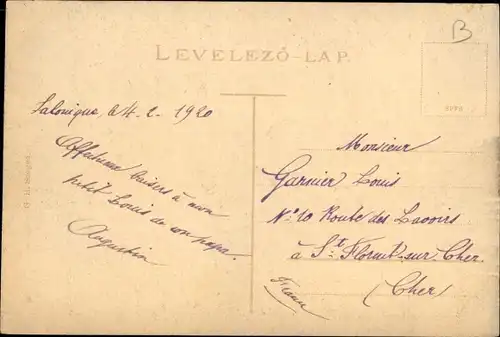 B
LEVELEZŐ-LAP.
Salonique le 4. 2. 1920
Affectueux baisers à mon
petit Louis de son papa.
Augustin
Monsieur
Garnier Louis
N° 10 Route des Lavoirs
à St Florent-sur-Cher
(Cher)
France